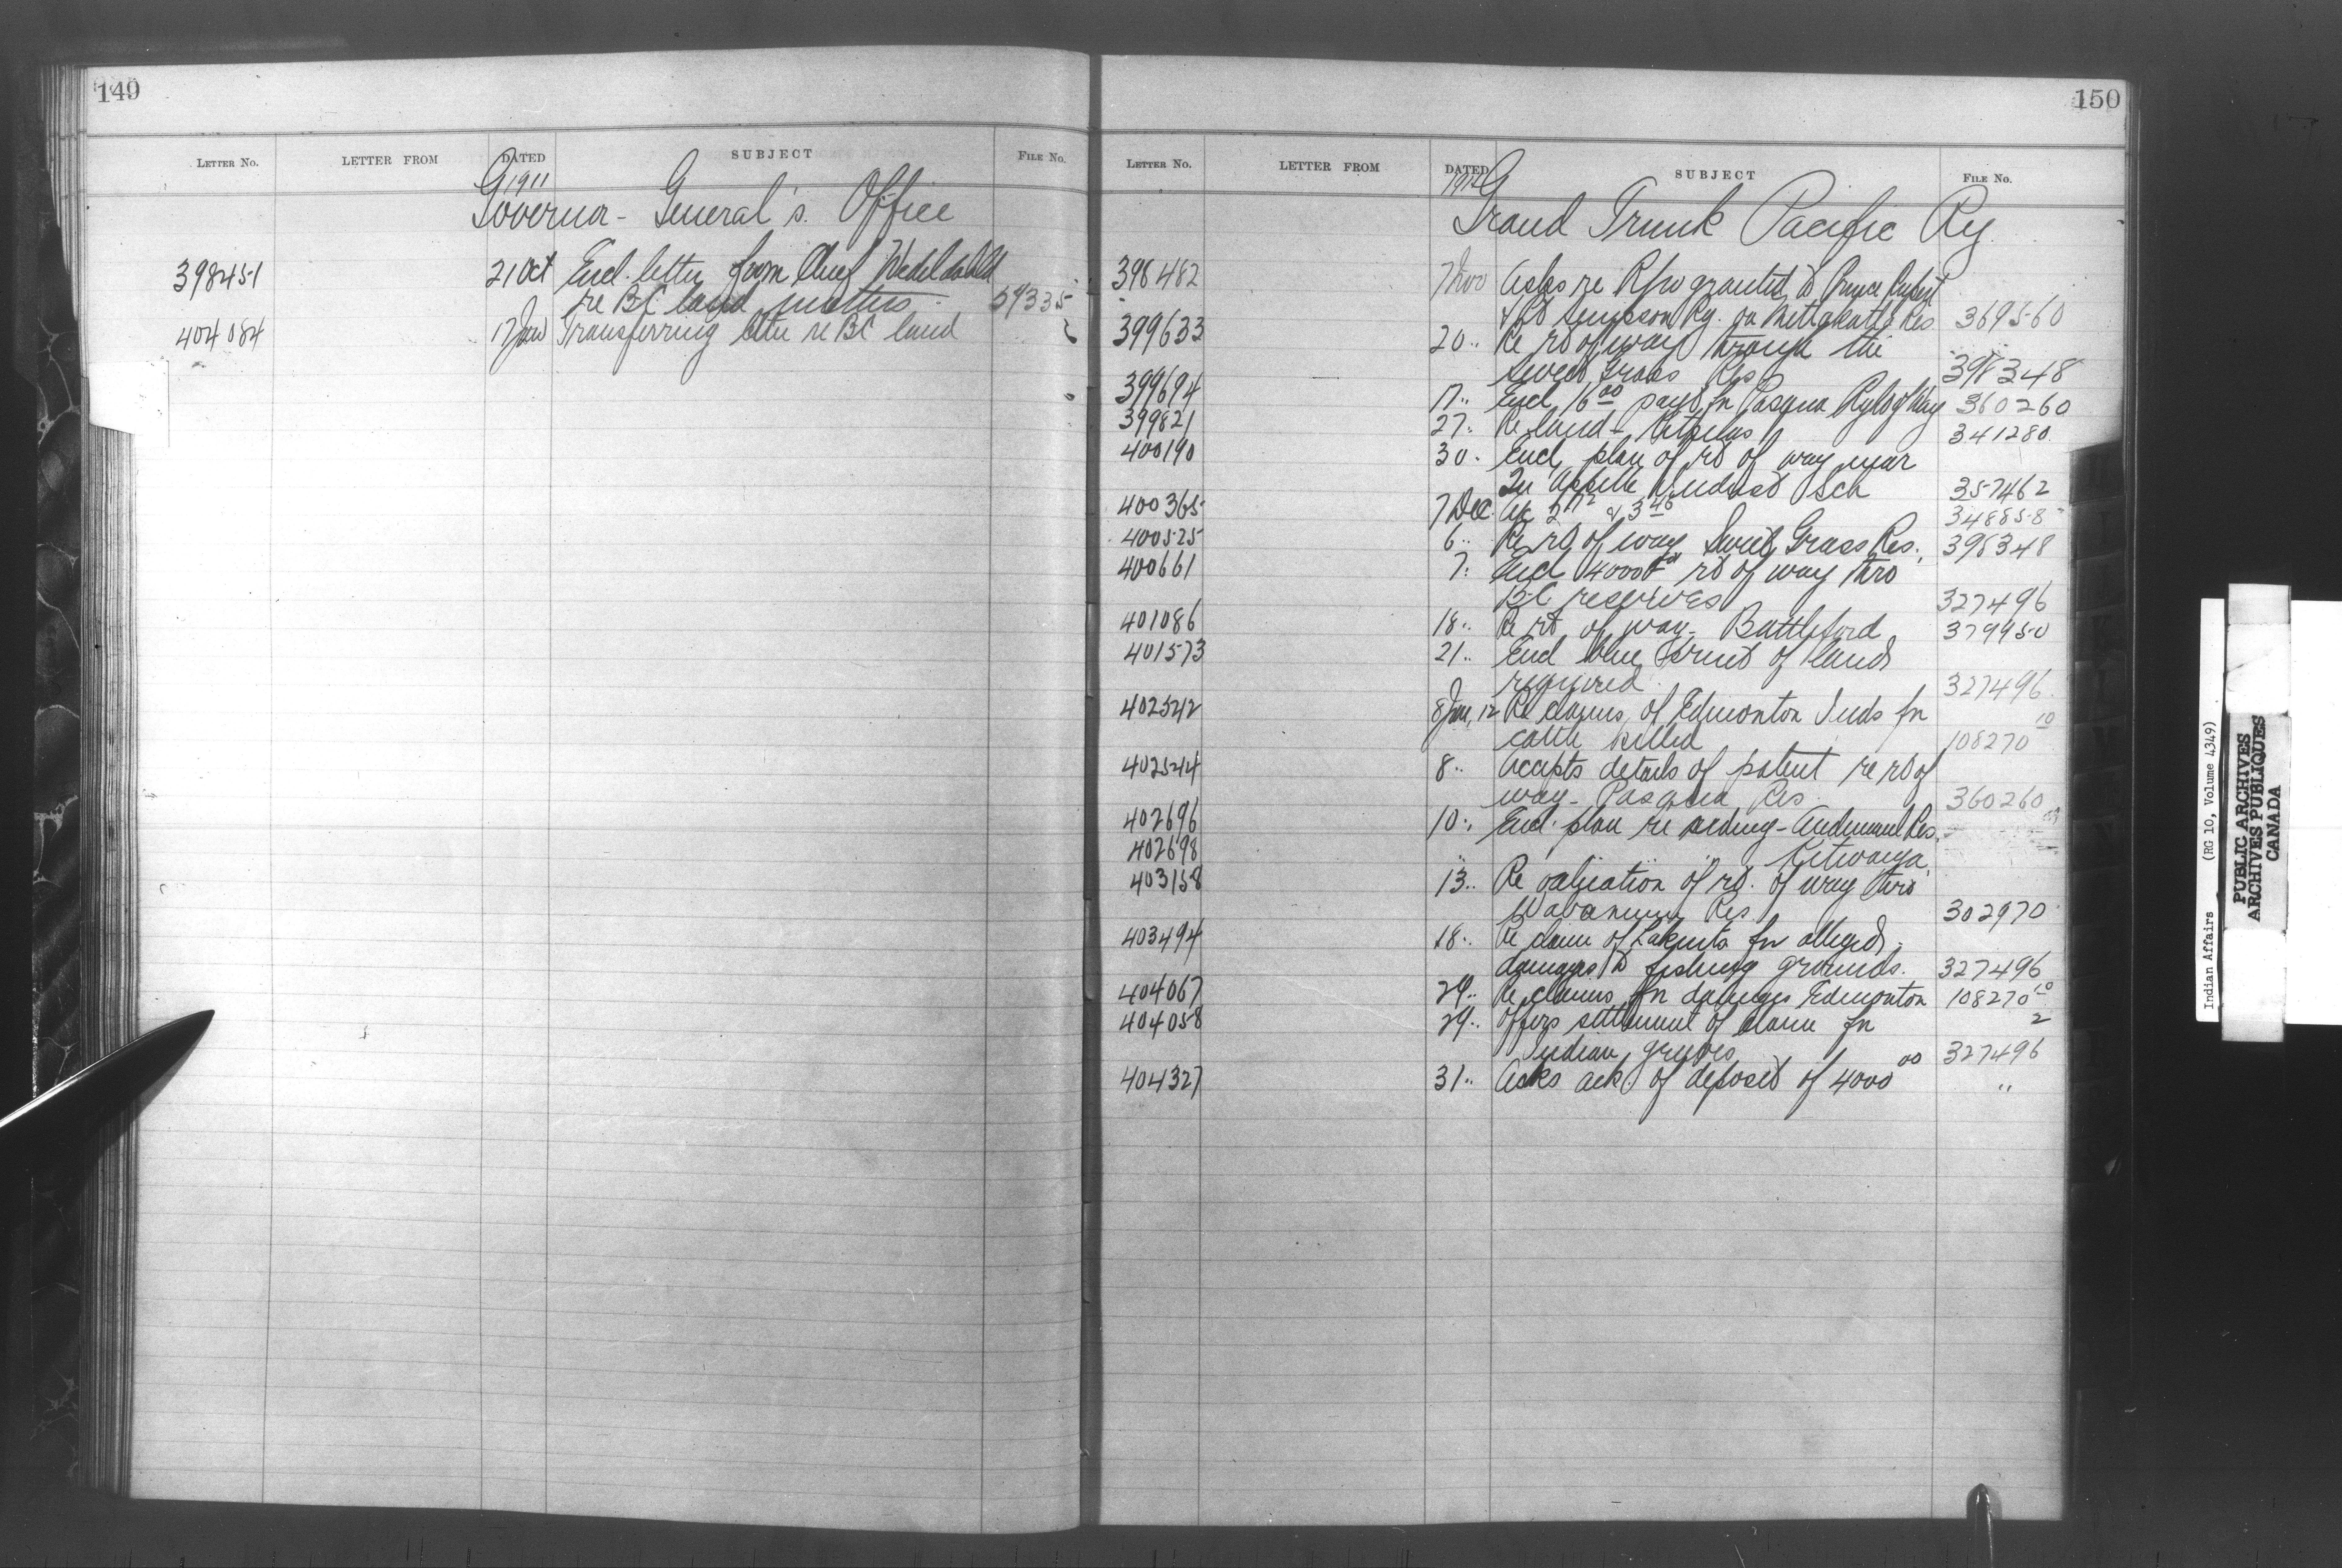 149
LETTER NO. LETTER FROM DATED SUBJECT FILE No.
G 1911
Governor-General's Office
398451 21 Oct Encl. letter from Chief
re BC land matters 59335
404084 17 Jan Transferring letter re BC land "
150
LETTER NO. LETTER FROM DATED SUBJECT FILE No.
G
Grand Trunk Pacific Ry.
398482 7 Nov Asks re R/w granted to Prince Rupert
& Pt Simpson Ry. on Metlakatla Res 369560
399633 20 " Re rt of way through the
Sweet Grass Res 398348
399694 17 " Encl 16 00 payt for Pasqua Rt of Way 360260
399821 27 " Re land - Kitselas 341280
400190 30 " Encl. plan of rt of way near
Qu'Appelle Indust Sch 357462
400365 7 Dec. 348858
400525 6 " Re rt of way Sweet Grass Res. 398348
400661 7 " Encl 4000 rt of way thro
B.C. reserves 327496
401086 18 " Re rt of way - Battleford 379950
401573 21 " Encl blue print of lands
required 327496
402542 8 Jan, 12 Re claims of Edmonton Inds for
cattle killed 108270 10
402544 8 " Accepts details of patent re rt of
way - Pasqua Res 360260
402696 10 " Encl. plan re siding - Res.
402698 " " " " Kitwanga
403158 13 " Re valuation of rt. of way thro
Wabamun Res 302970
403494 18 " Re claim of for alleged
damages to fishing grounds. 327496
404067 29 " Re claims for damages Edmonton 108270 10
404058 29 " Offers settlement of claim for
Indian graves 327496 2
404327 31 " Asks ack. of deposit of 4000 00 "
Indian Affairs (RG 10, Volume 4349)
PUBLIC ARCHIVES
ARCHIVES PUBLIQUES
CANADA